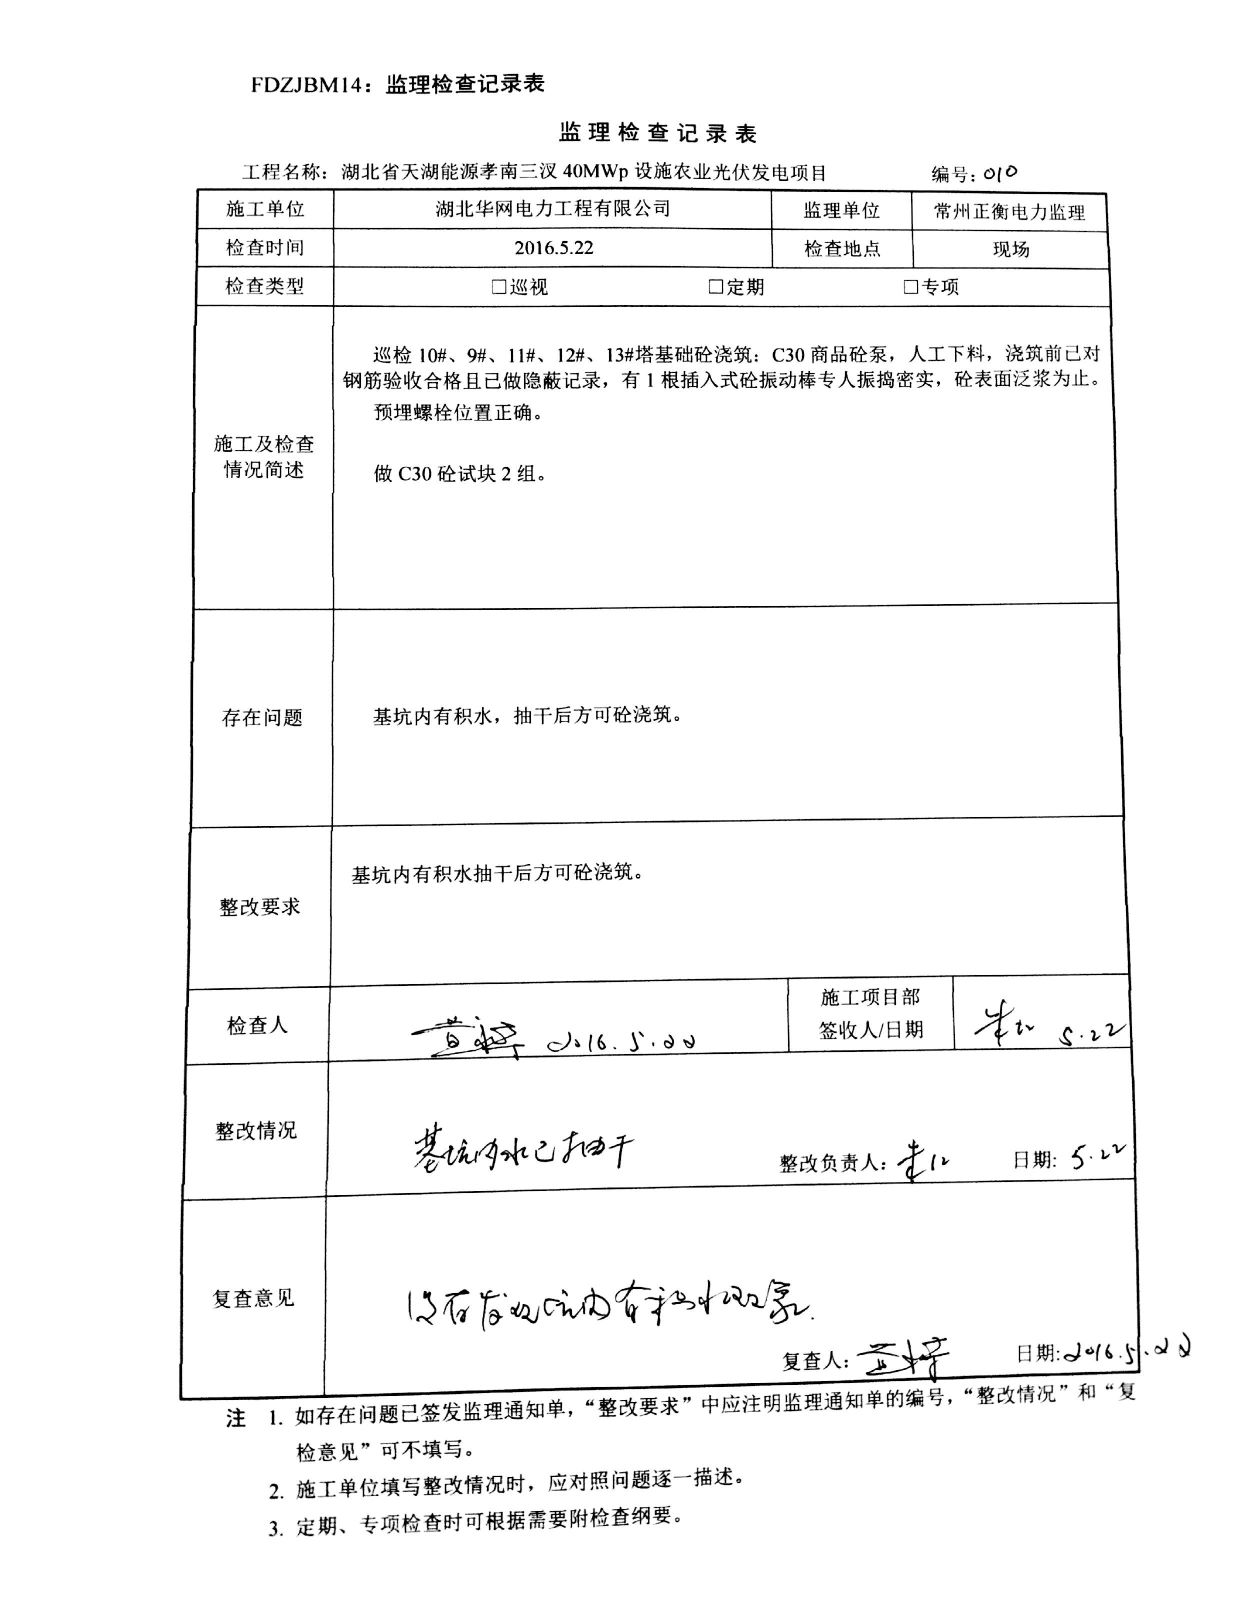 FDZJBM14：监理检查记录表
监理检查记录表
工程名称：湖北省天湖能源孝南三汊 40MWp 设施农业光伏发电项目 编号：010
施工单位 湖北华网电力工程有限公司 监理单位 常州正衡电力监理
检查时间 2016.5.22 检查地点 现场
检查类型 □巡视 □定期 □专项
巡检 10#、9#、11#、12#、13#塔基础砼浇筑：C30 商品砼泵，人工下料，浇筑前已对
钢筋验收合格且已做隐蔽记录，有 1 根插入式砼振动棒专人振捣密实，砼表面泛浆为止。
预埋螺栓位置正确。
施工及检查
情况简述
做 C30 砼试块 2 组。
存在问题 基坑内有积水，抽干后方可砼浇筑。
基坑内有积水抽干后方可砼浇筑。
整改要求
检查人 2016.5.22
施工项目部
签收人/日期 5.22
整改情况 基坑内水已抽干 整改负责人： 日期: 5.22
复查意见 没有发现坑内有积水现象.
复查人： 日期:2016.5.22
注 1. 如存在问题已签发监理通知单，“整改要求”中应注明监理通知单的编号，“整改情况”和“复
检意见”可不填写。
2. 施工单位填写整改情况时，应对照问题逐一描述。
3. 定期、专项检查时可根据需要附检查纲要。